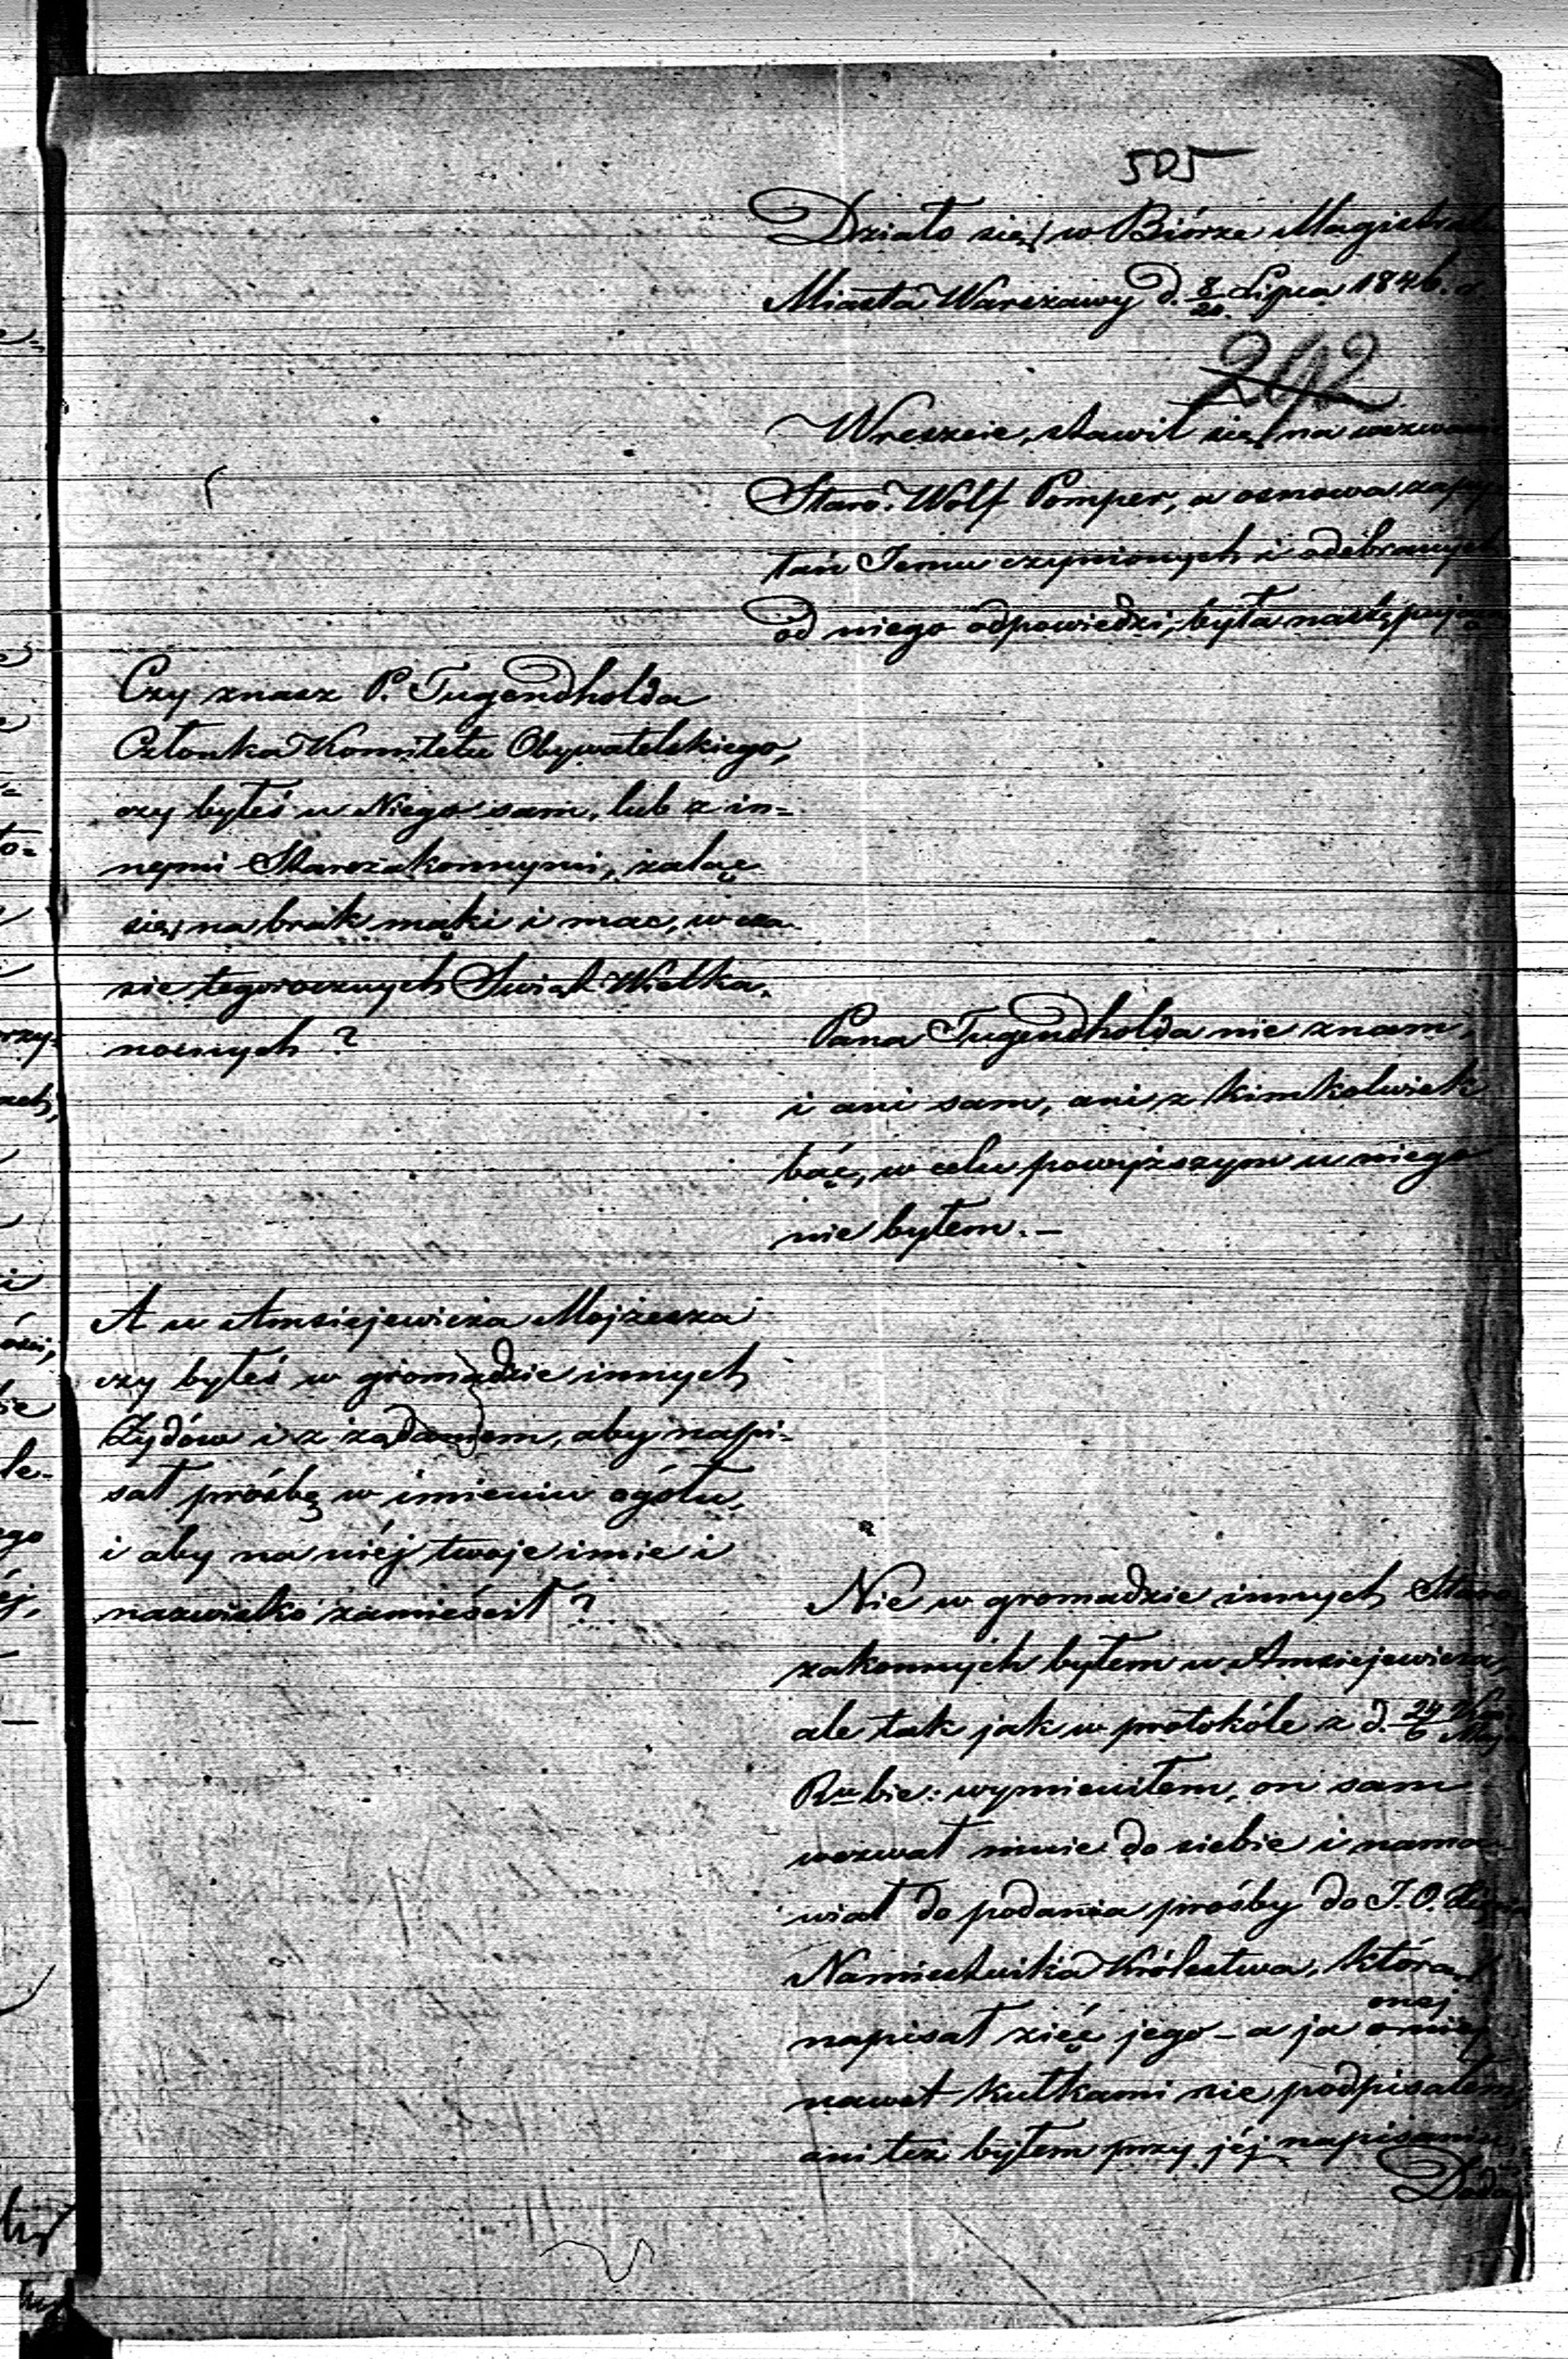 505
Działo się w Biórze Magistratu
Miasta Warszawy d. 8/20 Lipca 1846. r.
292
Wreszcie, stawił się na wezwanie
Staro. Wolf Pomper, a osnowa zapy
tań Jemu czynionych i odebranych
od niego odpowiedzi, była następują
Czy znasz P. Tugendholda
Członka Komitetu Obywatelskiego,
czy byłeś u Niego sam, lub z in=
nymi Starozakonnymi, żaląc
się na brak mąki i mac, w cza
sie tegorocznych Świąt Wielka.
nocnych?
Pana Tugendholda nie znam,
i ani sam, ani z kimkolwiek
bąć, w celu powyższym u niego
nie byłem. —
A u Amsiejewicza Mojżesza
czy byłeś w gromadzie innych
Żydów i z żądaniem, aby napi=
sał prośbę w imieniu ogółu,
i aby na niéj twoje imie i
nazwisko zamieścił?
Nie w gromadzie innych Staro
zakonnych byłem u Amsiejewicza,
ale tak jak w protokóle z d. 24/6
Ru bie: wymieniłem, on sam
wezwał mnie do siebie i namo
wiał do podania prośby do J. O. Xięcia
Namiestnika Królestwa, którą
onej
napisał zięć jego – a ja
nawet kulkami nie podpisałem,
ani też byłem przy jéj napisaniu,